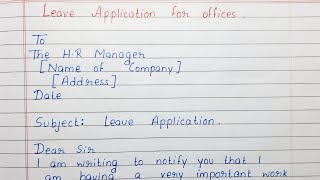 Leave Application for offices.
To
The H.R Manager
[Name of Company]
[Address]
Date
Subject: Leave Application.
Dear Sir
I am writing to notify you that I
am having a very important work